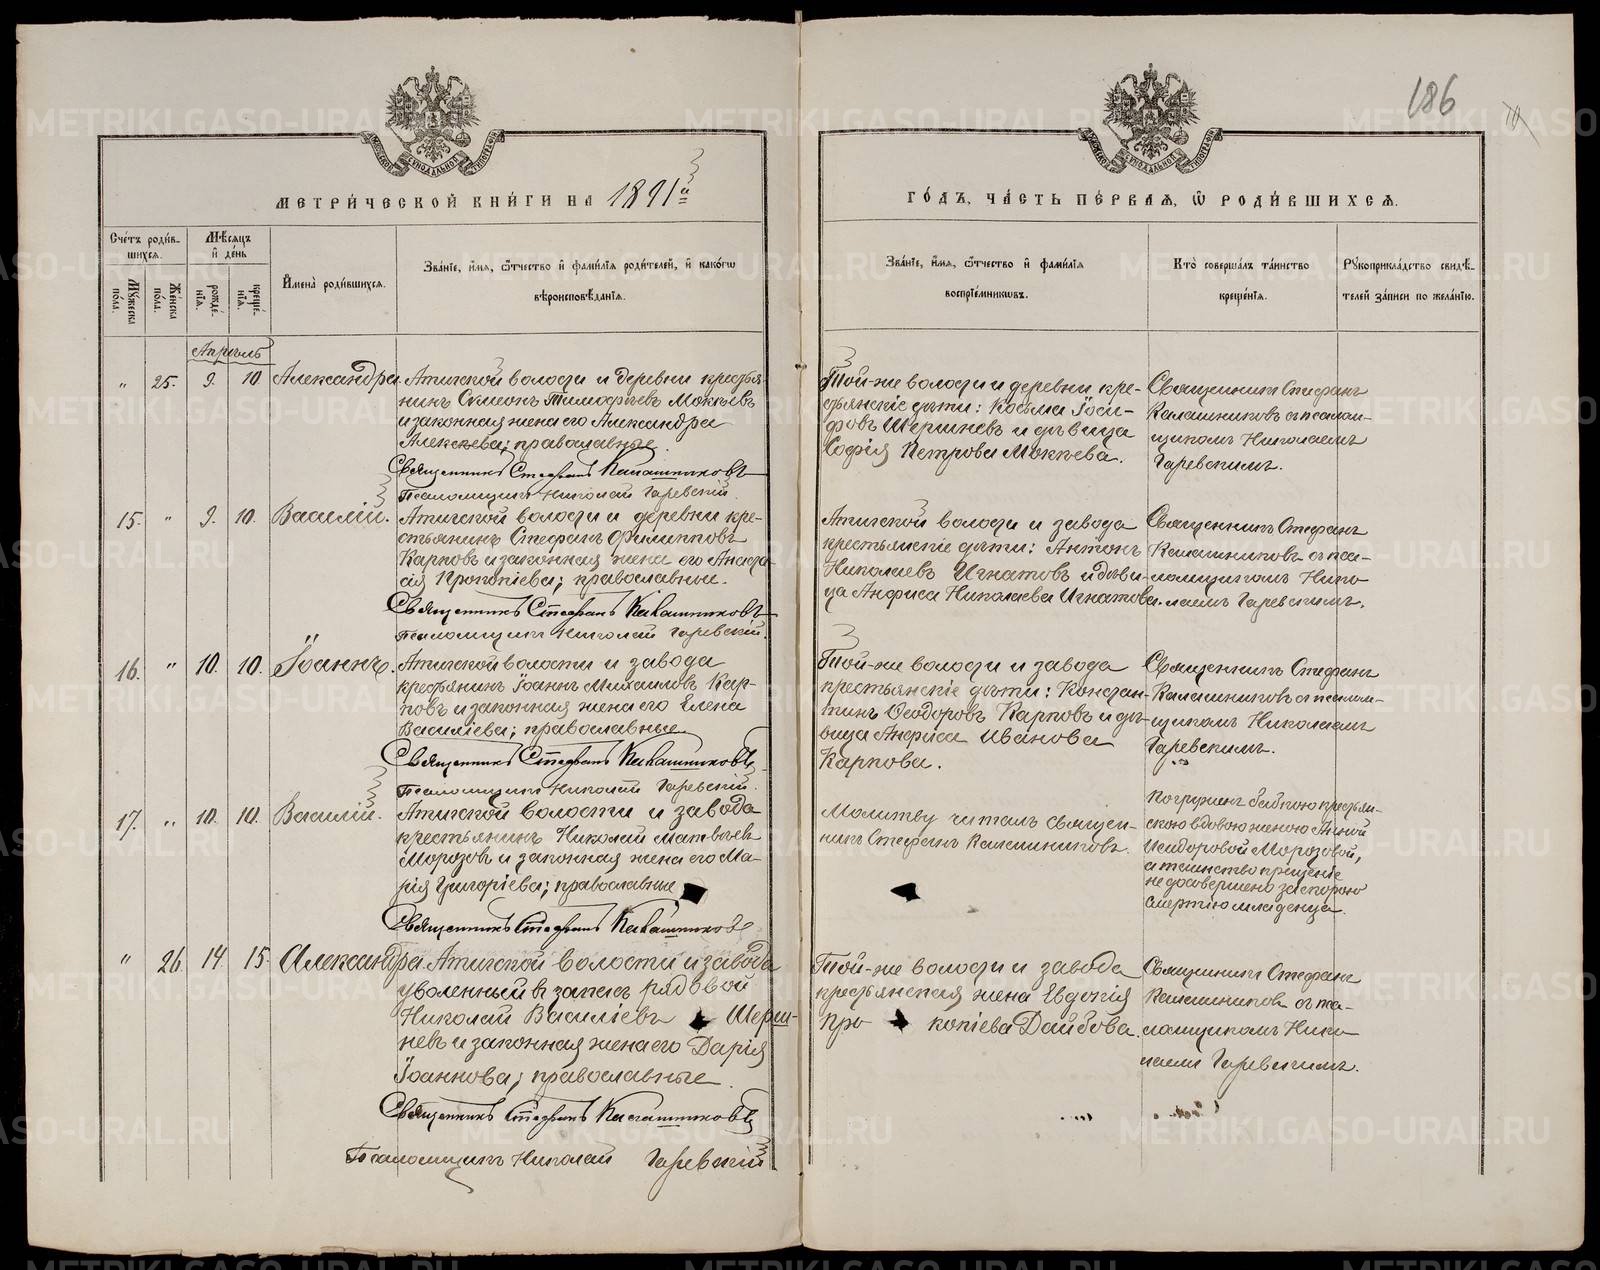 186
МЕТРИ́ЧЕСКОЙ КНИ́ГИ НА 1891й
ГО́ДЪ, ЧА́СТЬ ПЕ́РВАЯ, Ѽ РОДИ́ВШИХСѦ.
Сче́тъ роди́в-
шихся.
Му́жеска по́ла.
Же́нска по́ла.
Мѣ́сяцъ
и де́нь
рожде́-
нїя.
креще́-
нїя.
Имена̀ роди́вшихся.
Зва́нїе, и́мя, ѻ҆́тчество и҆ фамилїя роди́телей, и҆ како́гѡ
вѣроисповѣ́данїя.
Зва́нїе, и́мя, ѻ҆́тчество и҆ фамилїя
воспрїе́мникѡвъ.
Кто̀ соверша́лъ та́инство
креще́нїя.
Рꙋкоприкла́дство свидѣ́-
телей за́писи по жела́нїю.
Апрѣль
„ 25. 9. 10 Александра.
Атигской волости и деревни крестья-
нинъ Сѵмеонъ Тимофѣевъ Мокѣевъ
и законная жена его Александра
Алексѣева; православные.
Священникъ Стефанъ Калашниковъ
Псаломщикъ Николай Гаревскій.
Той-же волости и деревни кре-
стьянскіе дѣти: Косьма Іоси-
фовъ Шершневъ и дѣвица
Софія Петрова Мокѣева.
Священникъ Стефанъ
Калашниковъ съ псалом-
щикомъ Николаемъ
Гаревскимъ.
15. „ 9. 10. Василій.
Атигской волости и деревни кре-
стьянинъ Стефанъ Филипповъ
Карповъ и законная жена его Анаста-
сія Прокопіева; православные.
Священникъ Стефанъ Калашниковъ
Псаломщикъ Николай Гаревскій.
Атигской волости и завода
крестьянскіе дѣти: Антонъ
Николаевъ Игнатовъ и дѣви-
ца Анфиса Николаева Игнатова.
Священникъ Стефанъ
Калашниковъ съ пса-
ломщикомъ Нико-
лаемъ Гаревскимъ.
16. „ 10. 10. Іоаннъ.
Атигской волости и завода
крестьянинъ Іоаннъ Михаиловъ Кар-
повъ и законная жена его Елена
Василіева; православные
Священникъ Стефанъ Калашниковъ
Псаломщикъ Николай Гаревскій.
Той-же волости и завода
крестьянскіе дѣти: Констан-
тинъ Ѳеодоровъ Карповъ и дѣ-
вица Анфиса Иванова
Карпова.
Священникъ Стефанъ
Калашниковъ съ псалом-
щикомъ Николаемъ
Гаревскимъ.
17. „ 10. 10. Василій.
Атигской волости и завода
крестьянинъ Николай Матвѣевъ
Морозовъ и законная жена его Ма-
рія Григоріева; православные
Священникъ Стефанъ Калашниковъ
Молитву читалъ священ-
никъ Стефанъ Калашниковъ.
Погруженъ бабкою крестьян-
скою вдовою женою Анной
Исидоровой Морозовой,
а таинство крещеніе
не довершено за скорою
смертію младенца.
„ 26. 14. 15. Александра.
Атигской волости и завода
уволенный въ запасъ рядовой
Николай Василіевъ Шерш-
невъ и законная жена его Дарія
Іоаннова; православные.
Священникъ Стефанъ Калашниковъ
Псаломщикъ Николай Гаревскій
Той-же волости и завода
крестьянская жена Евдокія
Про копіева Дайбова.
Священникъ Стефанъ
Калашниковъ съ пса-
ломщикомъ Нико-
лаемъ Гаревскимъ.
METRIKI.GASO-URAL.RU